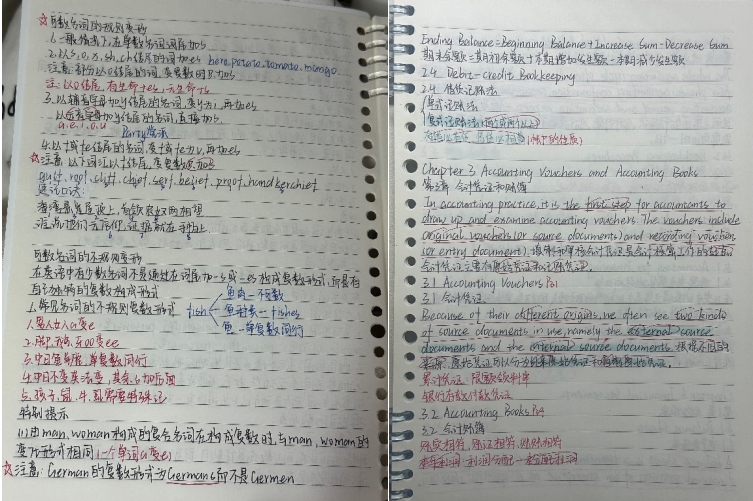 ☆可数名词的规则变形
1.一般情况下,在单数名词词尾加s
2.以s,o,x,sh,ch结尾的词加es hero,potato,tomato,mango
注意:部分以o结尾的词,变复数时只加s
注:以o结尾,有生命+es,无生命+s
3.以辅音字母加y结尾的名词,变y为i,再加es
以元音字母加y结尾的名词,直接加s
a.e.i.o.u
4.以f或fe结尾的名词,变f或fe为v,再加es
☆注意:以下词汇以f结尾,变复数只加s
gulf. roof. cliff. chief. serf. belief. proof. handkerchief
速记口诀:
海湾悬崖屋顶上,首领农奴两相望
可数名词的不规则变形
在英语中有少数名词不是通过在词尾加-s或-es构成复数形式,而是有
自己独特的复数构成形式
1.常见名词的不规则变复数形式
fish
鱼肉—不可数
鱼种类—fishes
鱼—单复数同行
人男人女人a变e
2.脚,鹅,牙oo变ee
3.中日鱼羊鹿,单复数同行
4.中日不变英法变,其余s加后面
特别提示
(1)由man,woman构成的复合名词在构成复数时,与man,woman的
变化形式相同
☆注意:German的复数形式为Germans而不是Germen
Ending Balance=Beginning Balance+Increase Sum-Decrease Sum
期末余额=期初余额+本期增加发生额-本期减少发生额
2.4 Debit-credit Bookkeeping
2.4 借贷记账法
单式记账法
复式记账法
Chapter 3 Accounting Vouchers and Accounting Books
第3章 会计凭证和账簿
In accounting practice, it is the first step for accountants to
draw up and examine accounting vouchers. The vouchers include
original vouchers (or source documents) and recording vouchers
(or entry document). 填制和审核会计凭证是会计核算工作的起点,
会计凭证主要有原始凭证和记账凭证.
3.1 Accounting Vouchers
3.1 会计凭证
Because of their different origins, we often see two kinds
of source documents in use, namely the external source
documents and the internal source documents. 根据不同的
来源,原始凭证可以分为外来原始凭证和自制原始凭证.
累计凭证 限额领料单
银行存款付款凭证
3.2 Accounting Books
3.2 会计账簿
账实相符,账证相符,账账相符
本年利润 利润分配—未分配利润